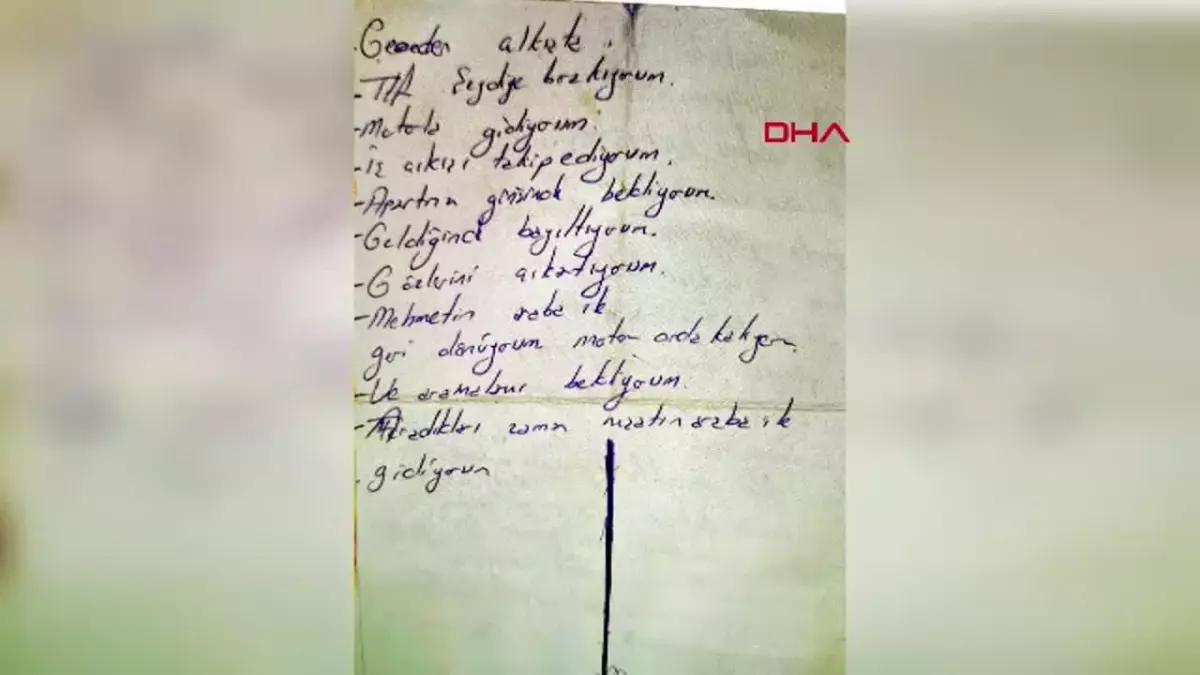 Geceden alkata.
-TIR Seydiye bırakıyorum.
DHA
-Motorla gidiyorum.
-İş çıkışı takip ediyorum.
-Apartman girişinde bekliyorum.
-Geldiğinde bayıltıyorum.
-Gözlerini çıkartıyorum.
-Mehmetin araba ile
geri dönüyorum motor orda kalıyor.
-Ve aramaları bekliyorum.
-Aradıkları zaman araba ile
gidiyorum